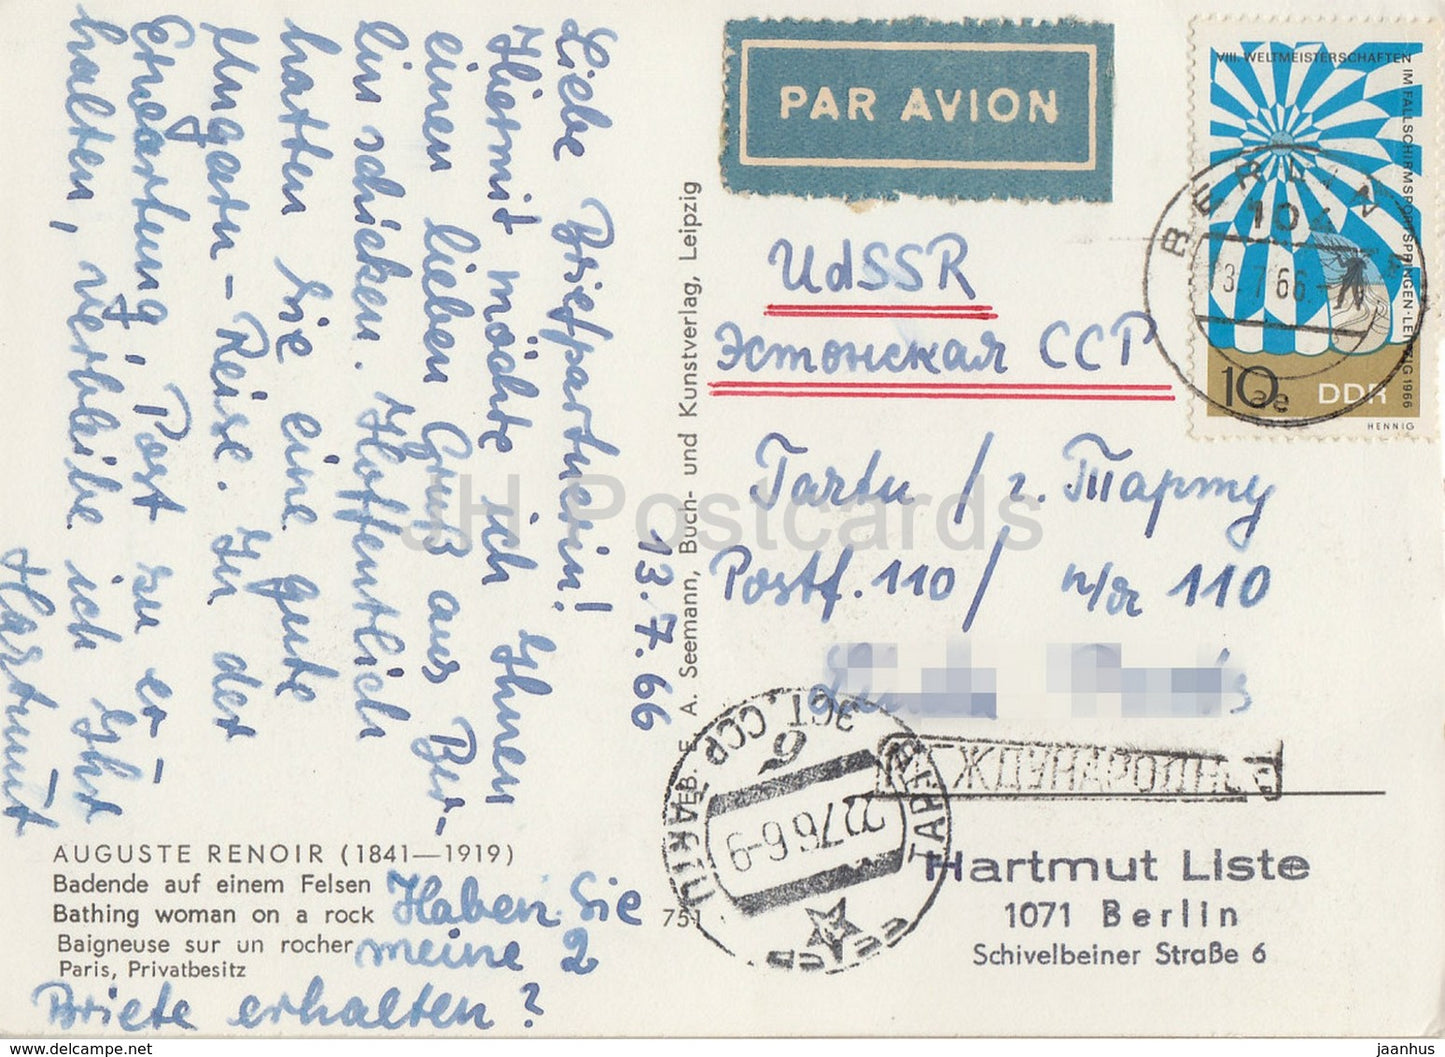 Liebe Briefpartnerin!
Hiermit möchte ich Ihnen
einen lieben Gruß aus Ber-
lin schicken. Hoffentlich
hatten Sie eine gute
Ungarn-Reise. In der
Erwartung, Post zu er-
halten, verbleibe ich Ihr
Hartmut
13.7.66
AUGUSTE RENOIR (1841—1919)
Badende auf einem Felsen
Bathing woman on a rock
Baigneuse sur un rocher
Paris, Privatbesitz
Haben Sie
meine 2
Briefe erhalten?
VEB. E. A. Seemann, Buch- und Kunstverlag, Leipzig
751
PAR AVION
VIII. WELTMEISTERSCHAFTEN
IM FALLSCHIRMSPORTSPRINGEN · LEIPZIG 1966
10
DDR
HENNIG
BERLIN
104
13.7.66
ae
UdSSR
Эстонская ССР
Tartu / г. Тарту
Postf. 110 / п/я 110
МЕЖДУНАРОДНОЕ
ТАРТУ ЭСТ. ССР TARTU
6
22766-9
СССР
Hartmut Liste
1071 Berlin
Schivelbeiner Straße 6
JH Postcards
www.delcampe.net
jaanhus